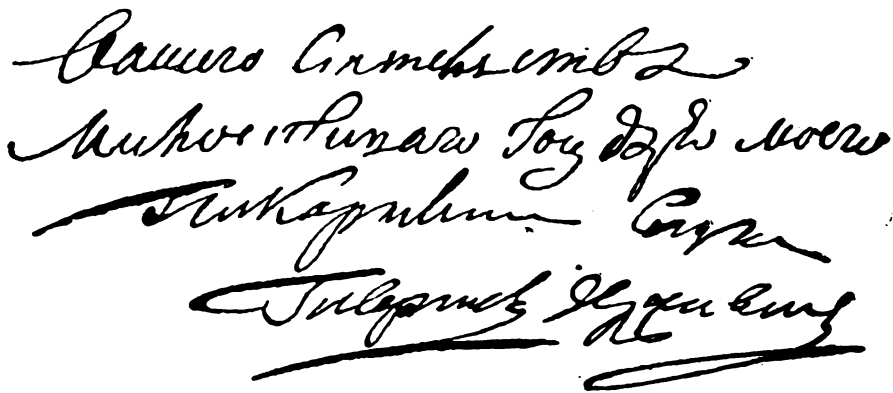 Вашего Сіятельства
Милостиваго Государя моего
Покорный Слуга
Гавриил Державинъ